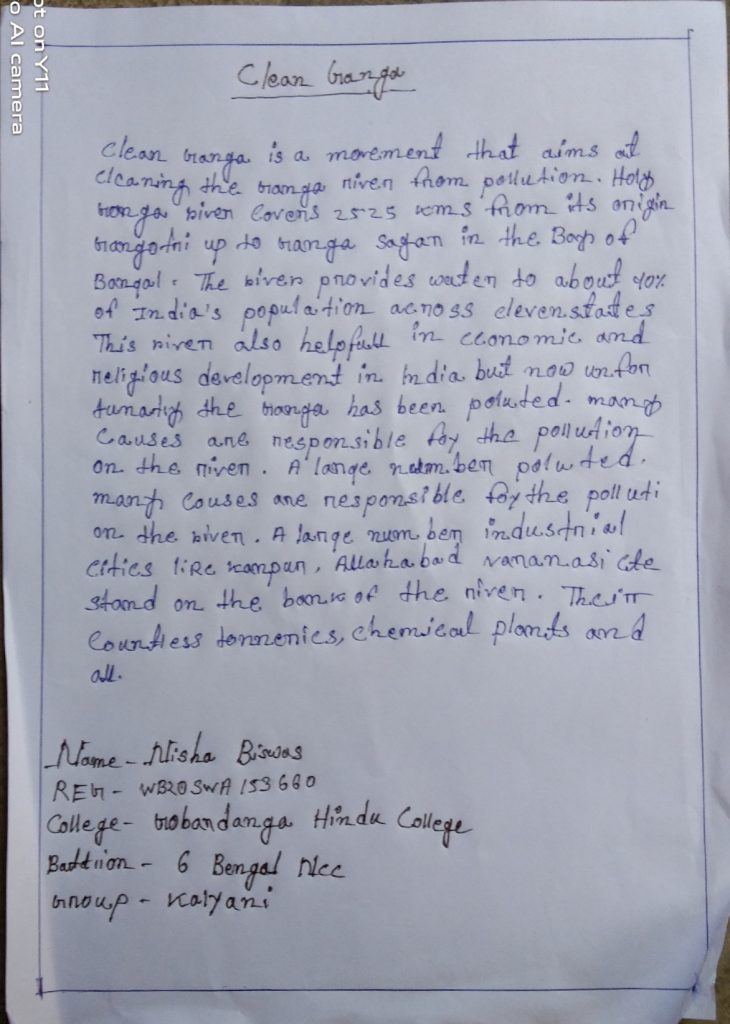 ot on Y11
o AI camera
Clean Ganga
Clean Ganga is a movement that aims at
cleaning the Ganga river from pollution. Holy
Ganga river Covers 2525 kms from its origin
Gangotri up to Ganga Sagar in the Bay of
Bangal. The river provides water to about 40%
of India's population across eleven states
This river also helpfull in economic and
religious development in India but now unfor
tunatly the Ganga has been poluted. many
Causes are responsible for the pollution
on the river. A large number poluted.
many Causes are responsible for the polluti
on the river. A large number industrial
cities like Kanpur, Allahabad varanasi etc
stand on the bank of the river. Their
Countless tonneries, chemical plants and
all.
Name - Nisha Biswas
REG - WB20SWA153660
College - Gobardanga Hindu College
Battlion - 6 Bengal Ncc
Group - Kalyani